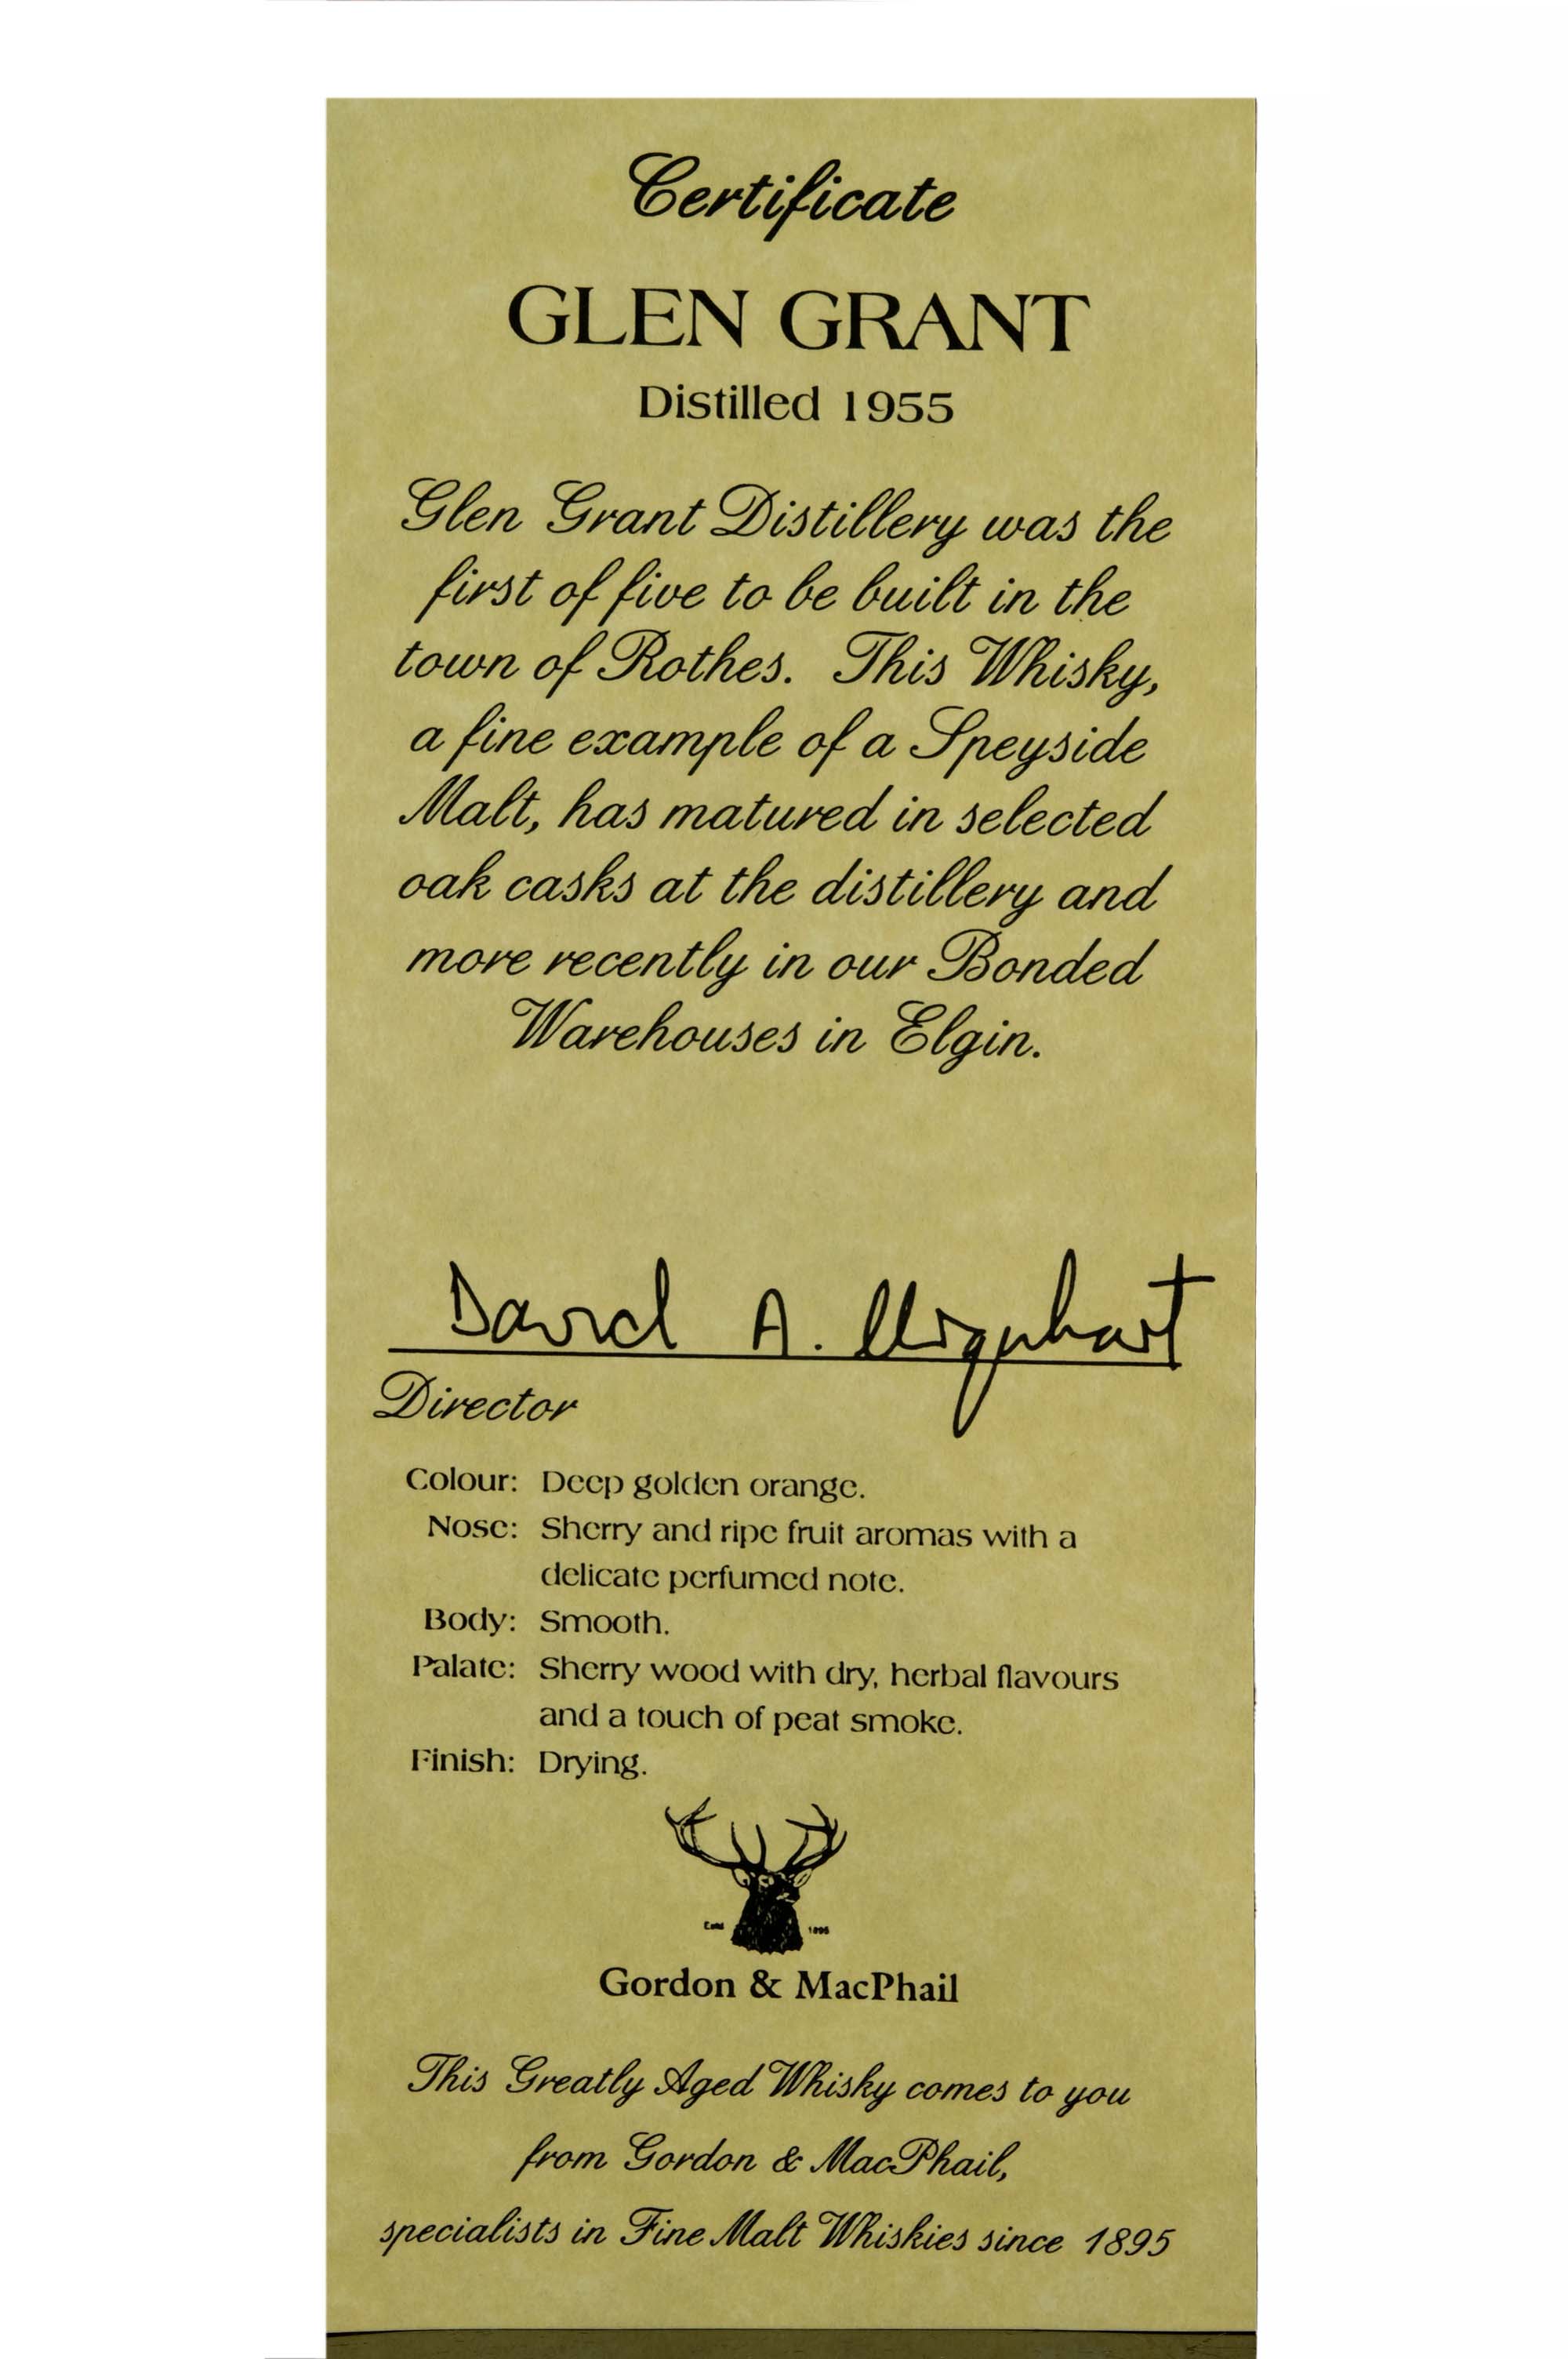 Certificate
GLEN GRANT
Distilled 1955
Glen Grant Distillery was the
first of five to be built in the
town of Rothes. This Whisky,
a fine example of a Speyside
Malt, has matured in selected
oak casks at the distillery and
more recently in our Bonded
Warehouses in Elgin.
David A. Urquhart
Director
Colour: Deep golden orange.
Nose: Sherry and ripe fruit aromas with a
delicate perfumed note.
Body: Smooth.
Palate: Sherry wood with dry, herbal flavours
and a touch of peat smoke.
Finish: Drying.
Estd 1895
Gordon & MacPhail
This Greatly Aged Whisky comes to you
from Gordon & MacPhail,
specialists in Fine Malt Whiskies since 1895